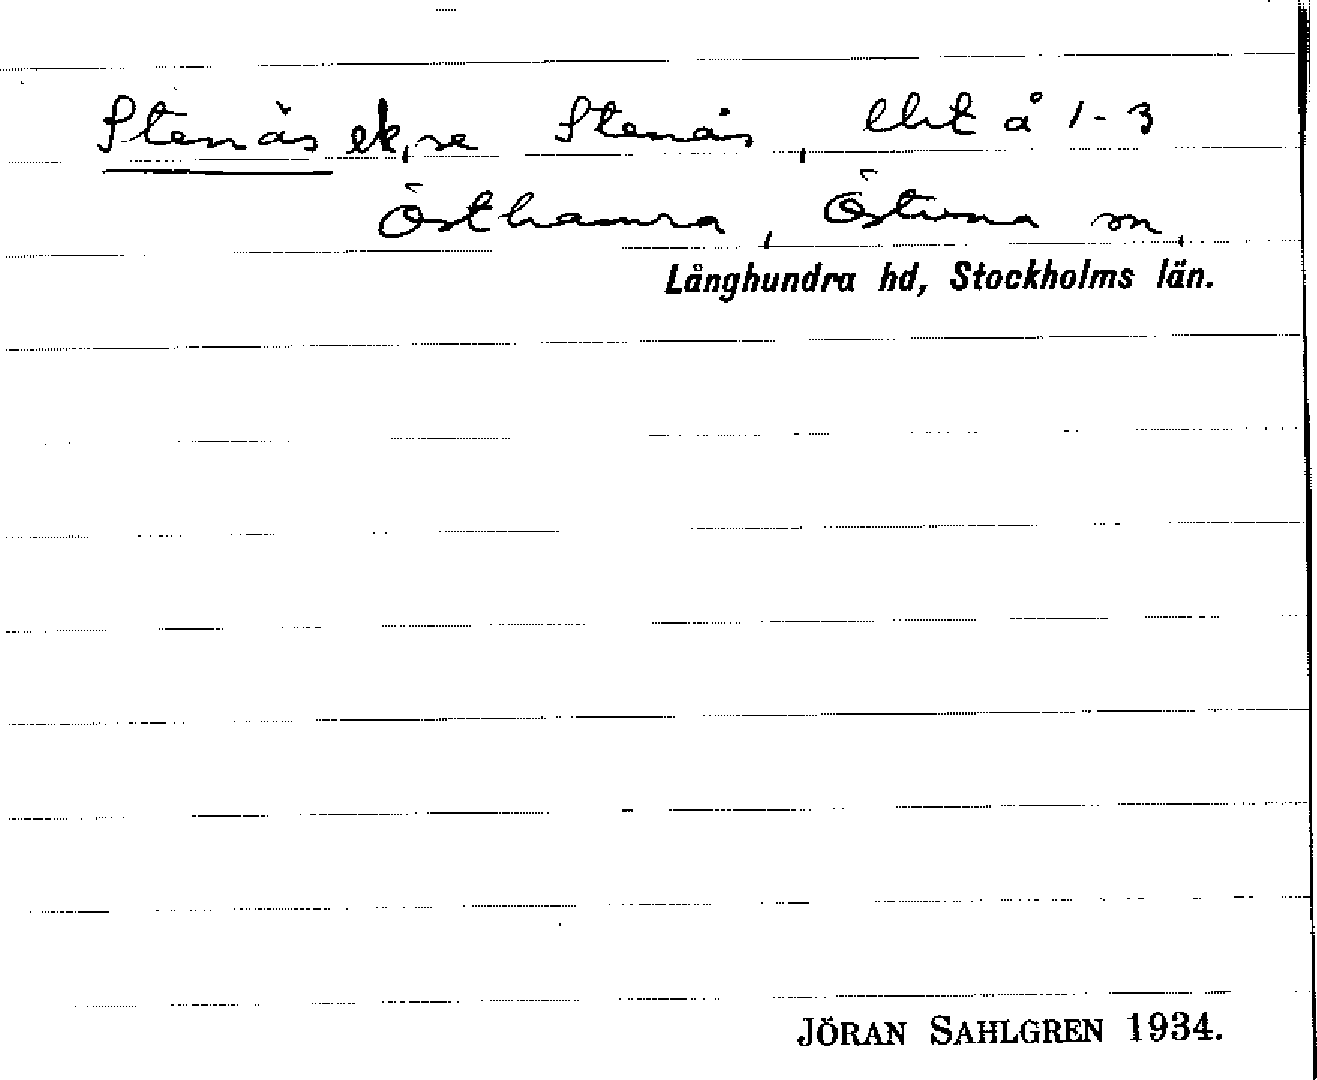 Stenås ek, se Stenås, lht å 1-3
Östhamra, Östuna sn,
Långhundra hd, Stockholms län.
JÖRAN SAHLGREN 1934.